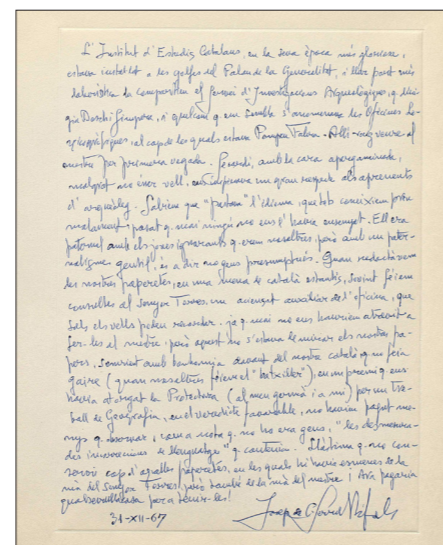 L'Institut d'Estudis Catalans, en la seva època més gloriosa,
estava instal·lat a les golfes del Palau de la Generalitat, i llur part més
laboriosa la compartien el Servei d'Investigacions Arqueològiques, q. diri-
gia Bosch i Gimpera, i quelcom q. em sembla s'anomenava les Oficines Le-
xicogràfiques al cap de les quals estava Pompeu Fabra. Allí vaig veure el
mestre per primera vegada. Seriós, amb la cara apergaminada,
malgrat no ésser vell, ens imposava un gran respecte als aprenents
d'arqueòleg. Sabíem que "portava" l'idioma, que tots coneixíem prou
malament, posat q. mai ningú no ens l'havia ensenyat. Ell era
paternal amb els joves ignorants q. érem nosaltres, però amb un pater-
nalisme gentil, és a dir no gens presumptuós. Quan redactàvem
les nostres paperetes, en una mena de català estantís, sovint fèiem
consultes al senyor Torres, un avençat auxiliar de l'oficina, que
sols els vells poden recordar, ja q. mai no ens hauríem atrevit a
fer-les al mestre. però aquest no s'estava de mirar els nostres pa-
pers, somrient amb bonhomia davant del nostre català q. en feia
gaire (quan nosaltres fèiem el "batxiller"), en un premi q. ens
havia atorgat la Protectora (al meu germà i a mi) per un tre-
ball de Geografia, en el veredicte favorable, no havien pogut me-
nys q. observar, com a nota q. no ho era gens, "les desmesura-
des incorreccions de llenguatge" q. contenia. Llàstima q. no con-
servo cap d'aquelles paperetes, en les quals hi havia esmenes de la
mà del senyor Torres, però també de la mà del mestre! Ara pagaria
qualsevol cosa per a tenir-les!
31-XII-67